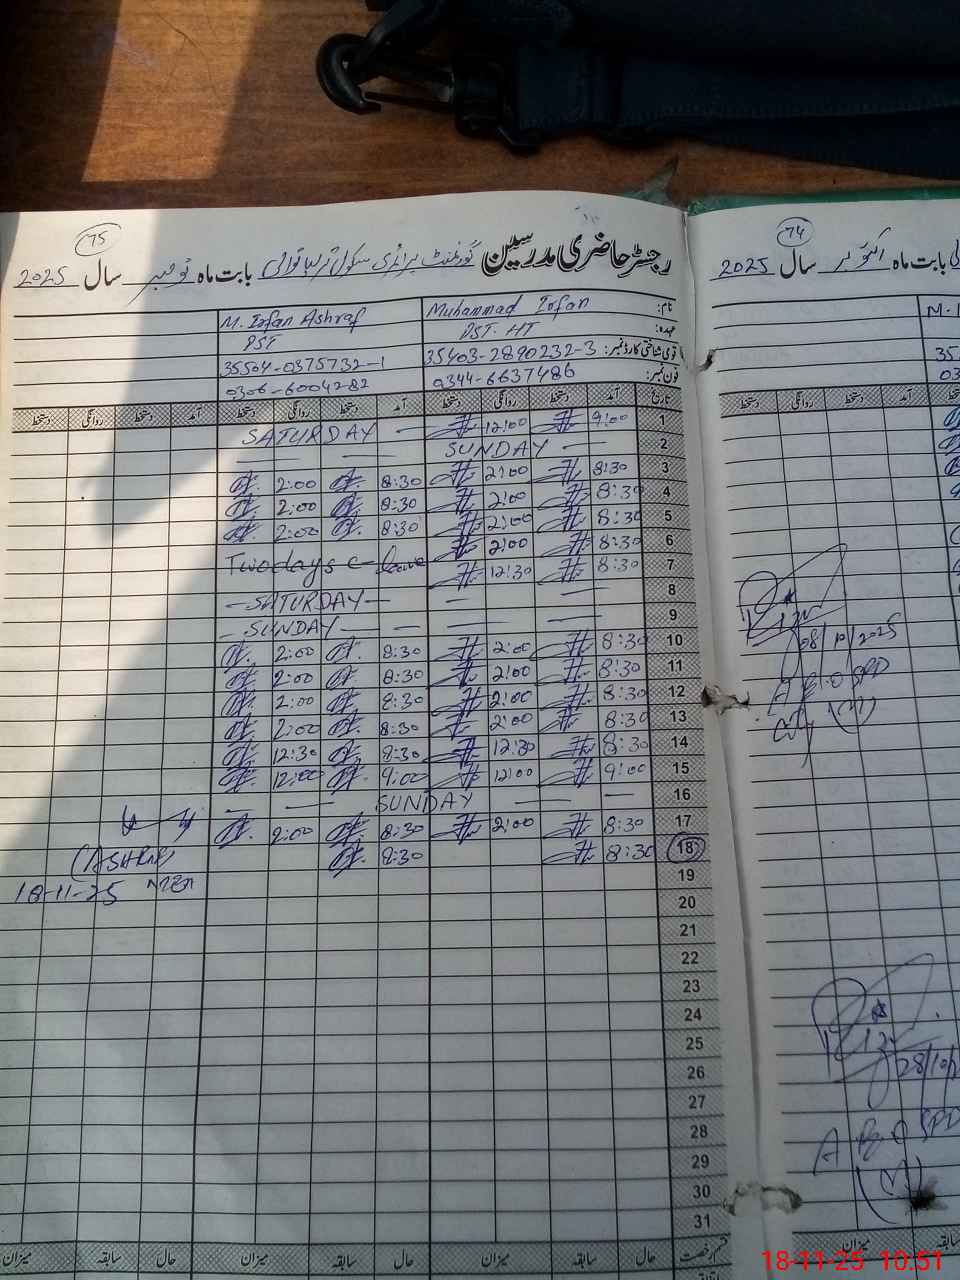 75
رجسٹر حاضری مدرسین گورنمنٹ پرائمری سکول بابت ماہ نومبر سال 2025
نام: Muhammad Irfan M. Irfan Ashraf
عہدہ: PST. HT PST
قومی شناختی کارڈ نمبر: 35403-2890232-3 35504-0375732-1
فون نمبر: 0344-6637486 0306-6004282
تاریخ آمد دستخط روانگی دستخط آمد دستخط روانگی دستخط آمد دستخط روانگی دستخط
1 9:00 12:00 — SATURDAY
2 — SUNDAY — —
3 8:30 2:00 8:30 2:00
4 8:30 2:00 8:30 2:00
5 8:30 2:00 8:30 2:00
6 8:30 2:00
7 8:30 12:30 Two days c- leave
8 — — — SATURDAY —
9 — — — — SUNDAY —
10 8:30 2:00 8:30 2:00
11 8:30 2:00 8:30 2:00
12 8:30 2:00 8:30 2:00
13 8:30 2:00 8:30 2:00
14 8:30 12:30 8:30 12:30
15 9:00 12:00 9:00 12:00
16 — — SUNDAY — —
17 8:30 2:00 8:30 2:00
18 8:30 8:30
(ASHRAF)
19
18-11-25 MEA
20
21
22
23
24
25
26
27
28
29
30
31
قسم رخصت حال سابقہ میزان حال سابقہ میزان حال سابقہ میزان
74
بابت ماہ اکتوبر سال 2025
M.
35
03
دستخط روانگی دستخط
08/10/2025
28/10/
میزان
18-11-25 10:51